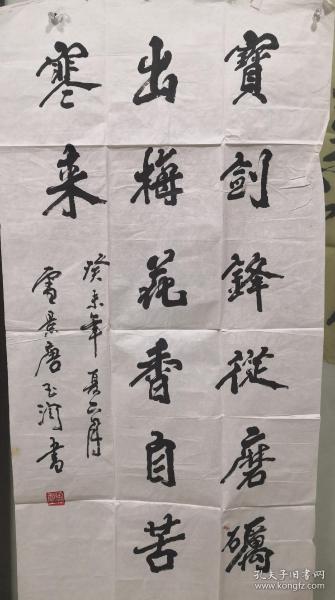 寶劍鋒從磨礪
出梅花香自苦
寒来
癸未年夏正月
雷景唐玉润書
孔夫子旧书网